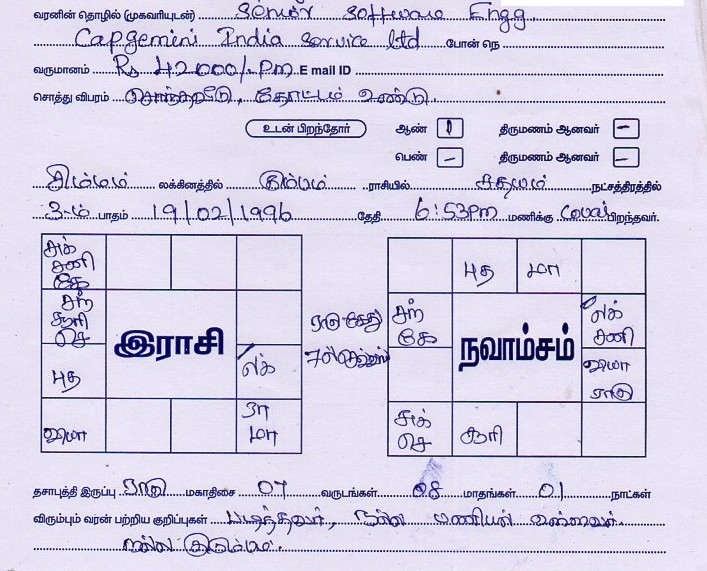 வரனின் தொழில் (முகவரியுடன்) Senior Software Engg.
Capgemini India Service Ltd போன் நெ
வருமானம் Rs 42000/- Pm E mail ID
சொத்து விபரம் சொந்தவீடு, தோட்டம் உண்டு.
உடன் பிறந்தோர் ஆண் 1 திருமணம் ஆனவர் –
பெண் – திருமணம் ஆனவர் –
சிம்மம் லக்கினத்தில் கும்பம் ராசியில் சதயம் நட்சத்திரத்தில்
3-ம் பாதம் 19/02/1996 தேதி 6:53 PM மணிக்கு கோவை பிறந்தவர்.
சுக் சனி கே
புத மா
சந் சூரி செ
இராசி
ராகு கேது
சந் கே
நவாம்சம்
லக் சனி
புத
லக்
குரு ராகு
குரு
ரா மா
சுக் செ
சூரி
தசாபுத்தி இருப்பு ராகு மகாதிசை 07 வருடங்கள் 08 மாதங்கள் 01 நாட்கள்
விரும்பும் வரன் பற்றிய குறிப்புகள் படித்தவர், நல்ல
நல்ல குடும்பம்.